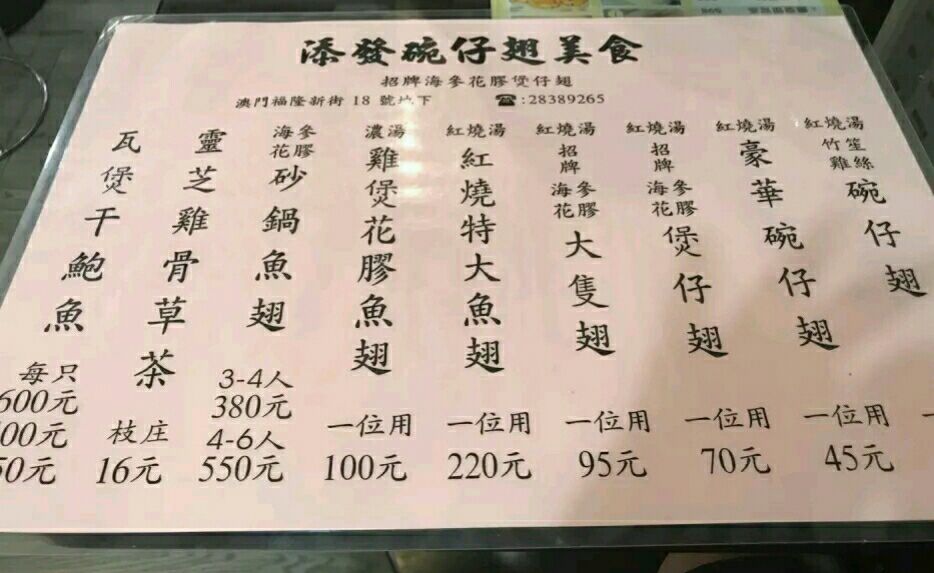 添發碗仔翅美食
招牌海參花膠煲仔翅
澳門福隆新街 18 號地下 ☎:28389265
紅燒湯
竹笙
雞絲
碗仔翅
紅燒湯
豪華碗仔翅
一位用
45元
紅燒湯
招牌
海參
花膠
煲仔翅
一位用
70元
紅燒湯
招牌
海參
花膠
大隻翅
一位用
95元
紅燒湯
紅燒特大魚翅
一位用
220元
濃湯
雞煲花膠魚翅
一位用
100元
海參
花膠
砂鍋魚翅
3-4人
380元
4-6人
550元
靈芝雞骨草茶
枝庄
16元
瓦煲干鮑魚
每只
600元
00元
50元